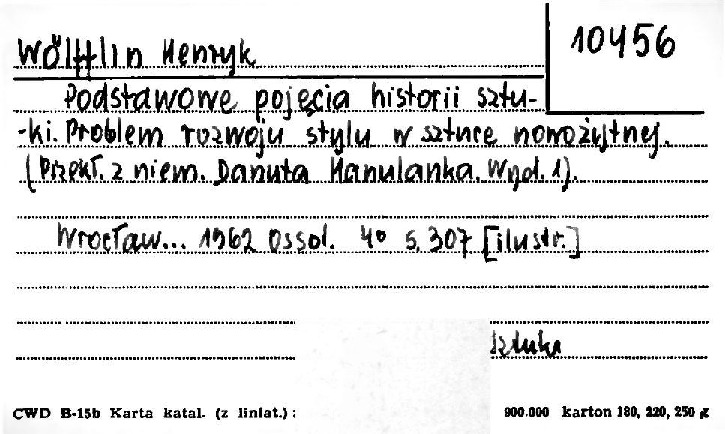 10456
Wölfflin Henryk
Podstawowe pojęcia historii sztu-
-ki. Problem rozwoju stylu w sztuce nowożytnej.
(Przekł. z niem. Danuta Hanulanka. Wyd. 1).
Wrocław... 1962 Ossol. 4° s. 307 [ilustr.]
Sztuka
CWD B-15b Karta katal. (z liniat.): 900.000 karton 180, 220, 250 g